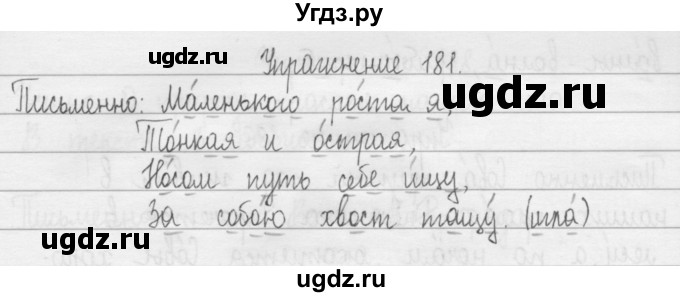 Угдз.ру
ugdz.ru ugdz.ru
Упражнение 181.
Письменно: Ма́ленького ро́ста я,
ugdz.ru
То́нкая и о́страя,
ugdz.ru
Но́сом путь себе и́щу,
ugdz.ru
За собо́ю хвост тащу́. (игла́)
ugdz.ru ugdz.ru
ugdz.ru